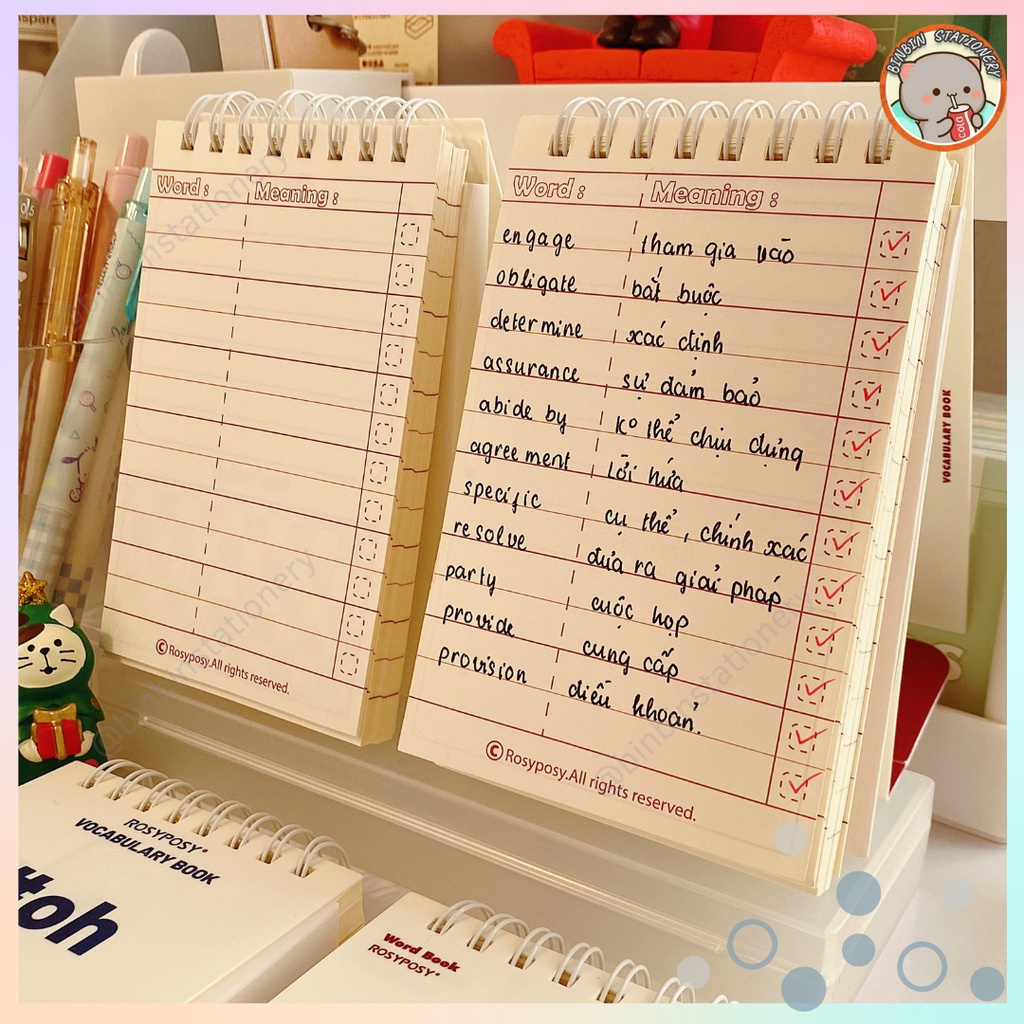 BINBIN STATIONERY
cola
Word : Meaning :
©Rosyposy.All rights reserved.
Word : Meaning :
engage tham gia vào
obligate bắt buộc
determine xác định
assurance sự đảm bảo
abide by ko thể chịu đựng
agreement lời hứa
specific cụ thể, chính xác
resolve đưa ra giải pháp
party cuộc họp
provide cung cấp
provision điều khoản.
©Rosyposy.All rights reserved.
VOCABULARY BOOK
ROSYPOSY
VOCABULARY BOOK
Word Book
ROSYPOSY
@binbinstationery